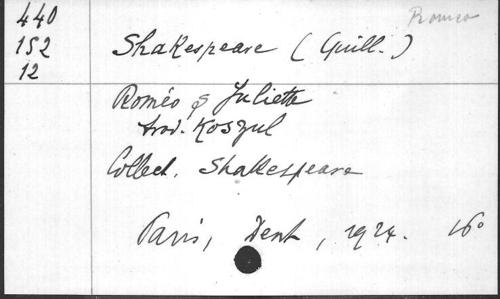 440
Romeo
152 Shakespeare (Guill.)
12
Roméo & Juliette
trad. Koszul
Collect. Shakespeare
Paris, Dent, 1924. 16°